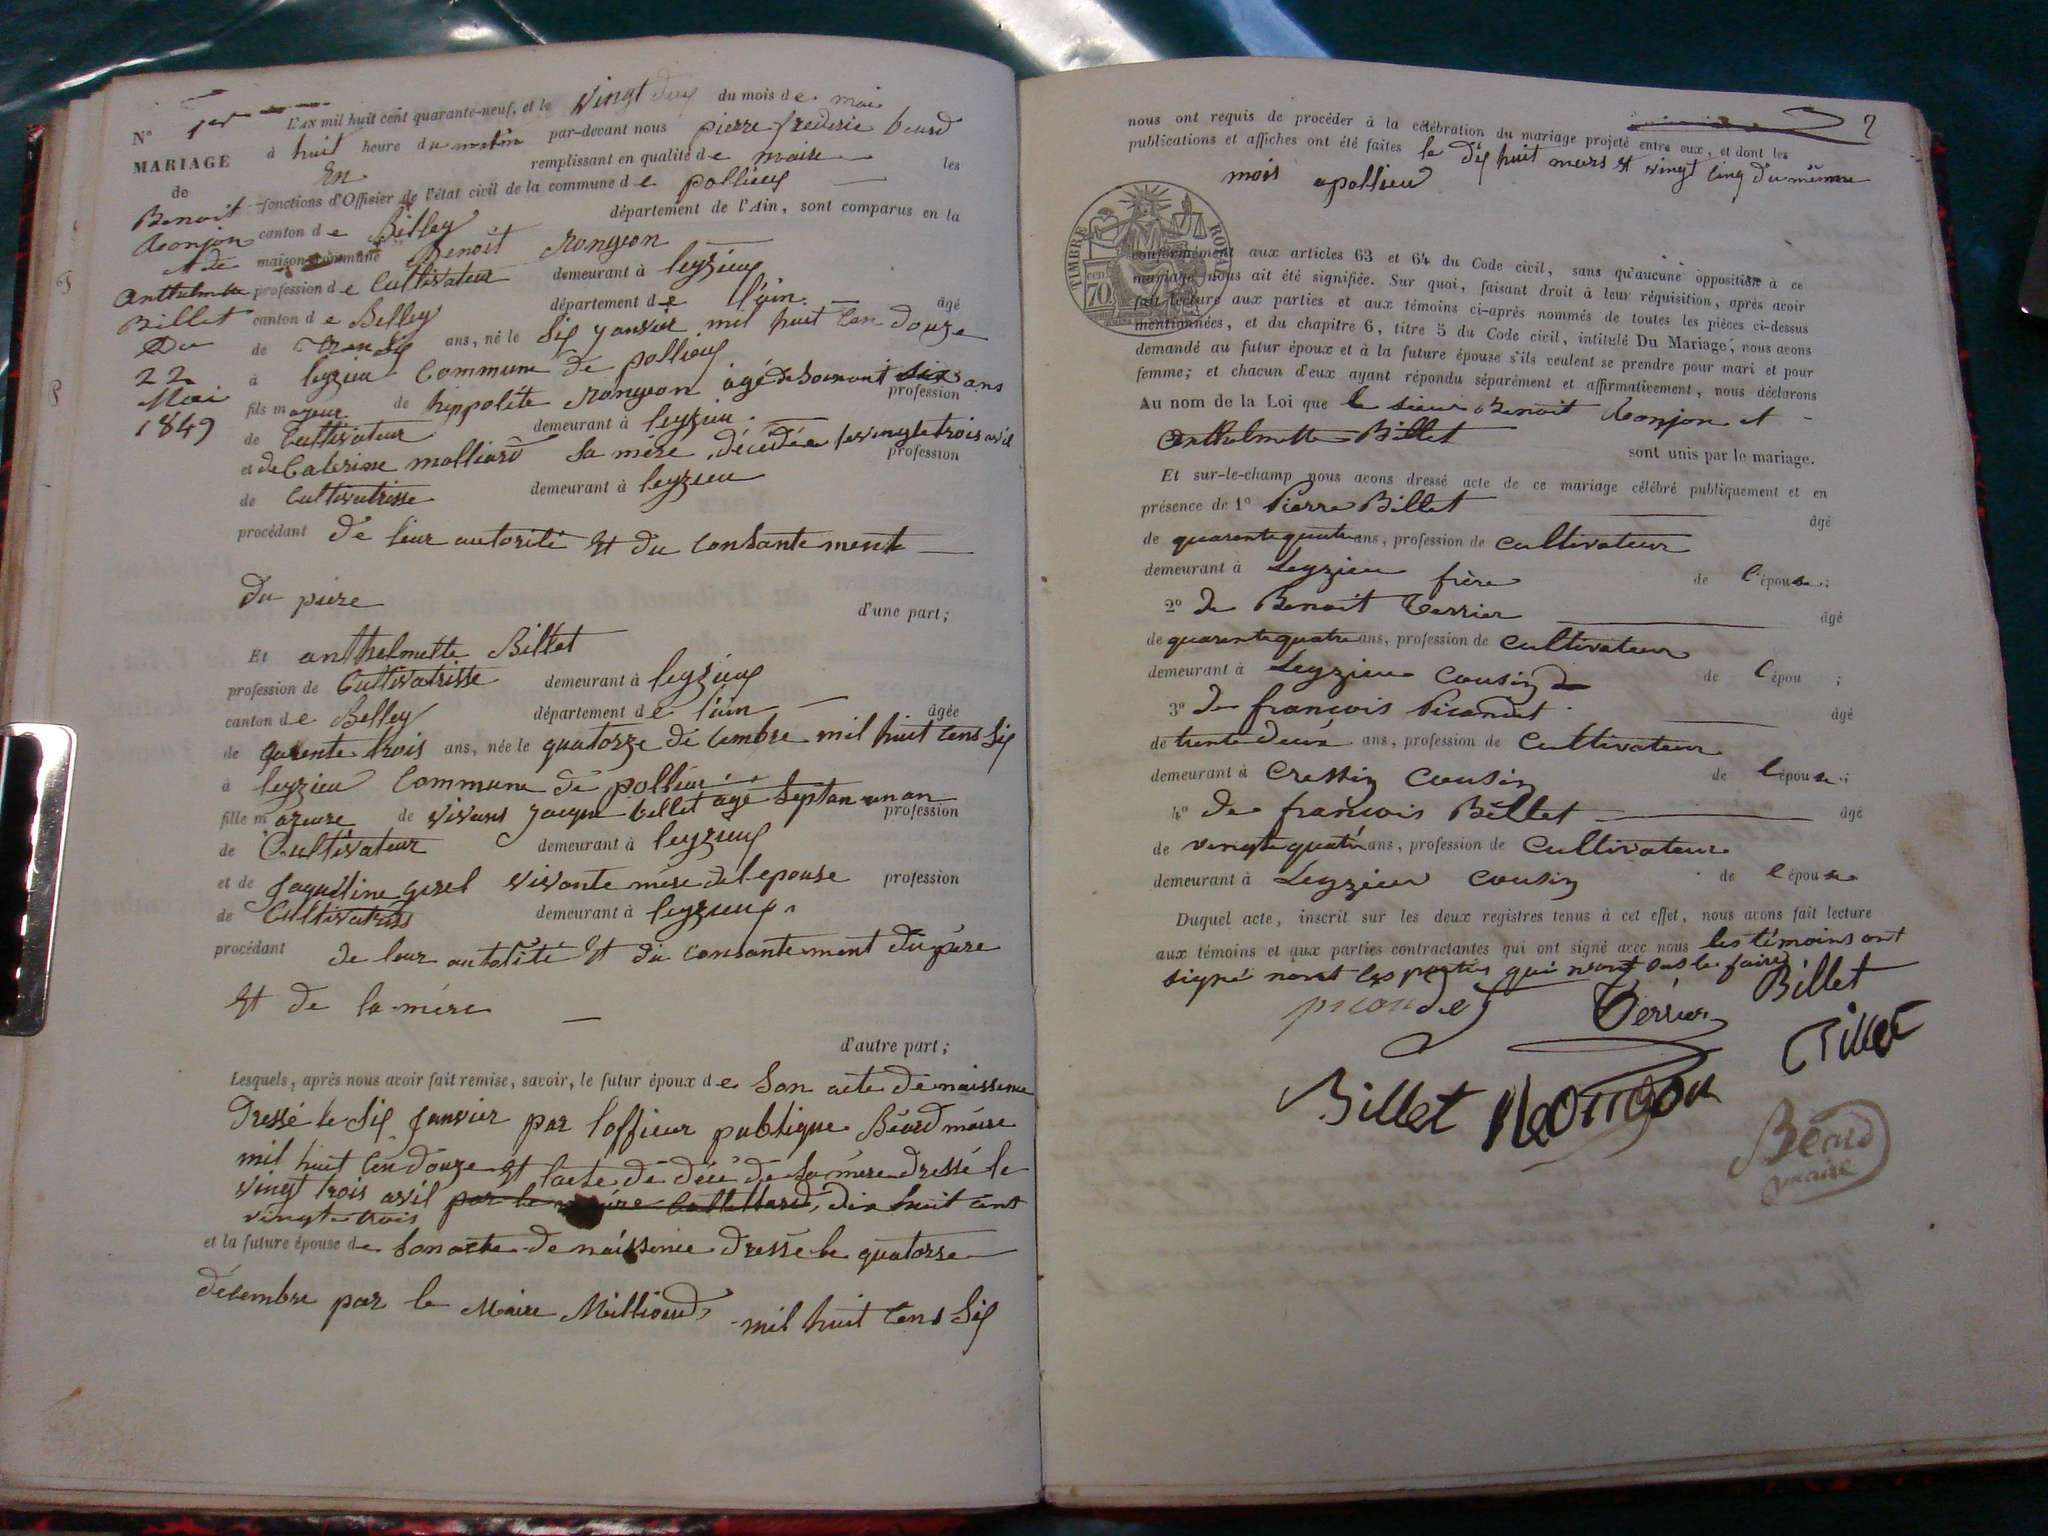 L'AN mil huit cent quarante-neuf, et le vingt deux du mois de mai
N° 1er
à huit heure du matin par-devant nous pierre frederic beard
MARIAGE
En remplissant en qualité de maire les
de
fonctions d'Officier de l'état civil de la commune de pollieux
Benoit
canton de Billey département de l'Ain, sont comparus en la
Ronjon
maison commune Benoît rongeon
et de
profession de Cultivateur demeurant à leyzieux
Anthelmette
canton de Belley département de l'ain. âgé
Billet
de ans, né le six janvier mil huit cen douze
Du
à leyzieu Commune de pollieux
22
fils mageur de hippolite rongeon âgé de soixant six ans profession
Mai
de Cultivateur demeurant à leyzieu.
1849
et de Caterine molliard sa mère, décédée le vingte trois avil profession
de Cultivatrisse demeurant à leyzieu
procédant de leur autorité et du consantement
du père
d'une part;
Et anthelmette Billet
profession de Cultivatrisse demeurant à leyzieux
canton de Belley département de l'ain âgée
de quarente trois ans, née le quatorze décembre mil huit cens six
à leyzieu Commune de pollieu
fille majeure de vivans jacque billet agé septan un an profession
de Cultivateur demeurant à leyzieux
et de jaqueline gerel vivante mère del epouse profession
de Cultivatriss demeurant à leyzieux.
procédant de leur autotité et du consantement du père
et de la mère
d'autre part;
Lesquels, après nous avoir fait remise, savoir, le futur époux de son acte de naissence
dressé le six janvier par l'officier publique Béard maire
mil huit cen douze et l'acte de décè de sa mère dressé le
vingt trois avil par le maire dix huit cent
vingte trois
et la future épouse de son acte de naissence dressé le quatorse
décembre par le Maire Milliourd, mil huit cens six
2
nous ont requis de procéder à la célébration du mariage projeté entre eux, et dont les
publications et affiches ont été faites le dix huit mars et vingt cinq du même
mois a pollieu
TIMBRE ROYAL
70 cent
conformément aux articles 63 et 64 du Code civil, sans qu'aucune opposition à ce
mariage nous ait été signifiée. Sur quoi, faisant droit à leur réquisition, après avoir
fait lecture aux parties et aux témoins ci-après nommés de toutes les pièces ci-dessus
mentionnées, et du chapitre 6, titre 5 du Code civil, intitulé Du Mariage, nous avons
demandé au futur époux et à la future épouse s'ils veulent se prendre pour mari et pour
femme; et chacun d'eux ayant répondu séparément et affirmativement, nous déclarons
Au nom de la Loi que le sieur Benoit Ronjon et
Anthelmette Billet
sont unis par le mariage.
Et sur-le-champ nous avons dressé acte de ce mariage célébré publiquement et en
présence de 1° Pierre Billet âgé
de quarente quatre ans, profession de cultivateur
demeurant à Leyzieu frère de l'épouse;
2° de Benoit Terrier âgé
de quarente quatre ans, profession de cultivateur
demeurant à Leyzieu cousin de l'épou ;
3° de françois Picandet. âgé
de trente deux ans, profession de cultivateur
demeurant à Cressin cousin de l'épouse;
4° de francois Billet âgé
de vingte quatre ans, profession de cultivateur
demeurant à Leyzieu cousin de l'épouse
Duquel acte, inscrit sur les deux registres tenus à cet effet, nous avons fait lecture
aux témoins et aux parties contractantes qui ont signé avec nous les témoins ont
signé nomt les parties qui n'ont sus le faire
picandet Terrier Billet
Billet
Billet Reongon
Béard
maire